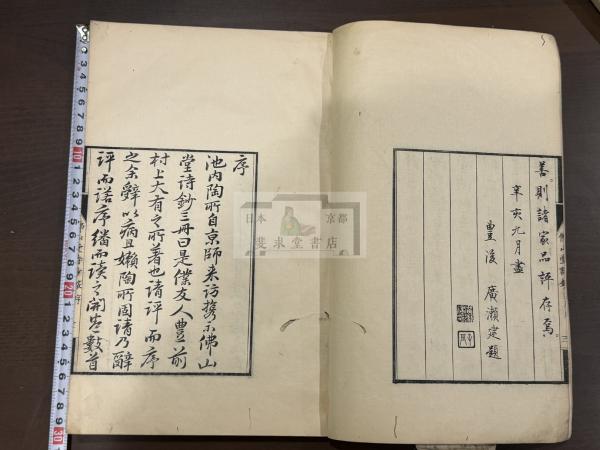 善則諸家品評存焉
辛亥九月盡
豊後 廣瀬建題
序
池内陶所自京師来訪携示佛山
堂诗鈔三冊曰是僕友人豊前
村上大有之所著也请評而序
之余辤以病且嬾陶所固请乃辤
評而诺序繙而读之開卷數首
日本 京都
斐求堂書店